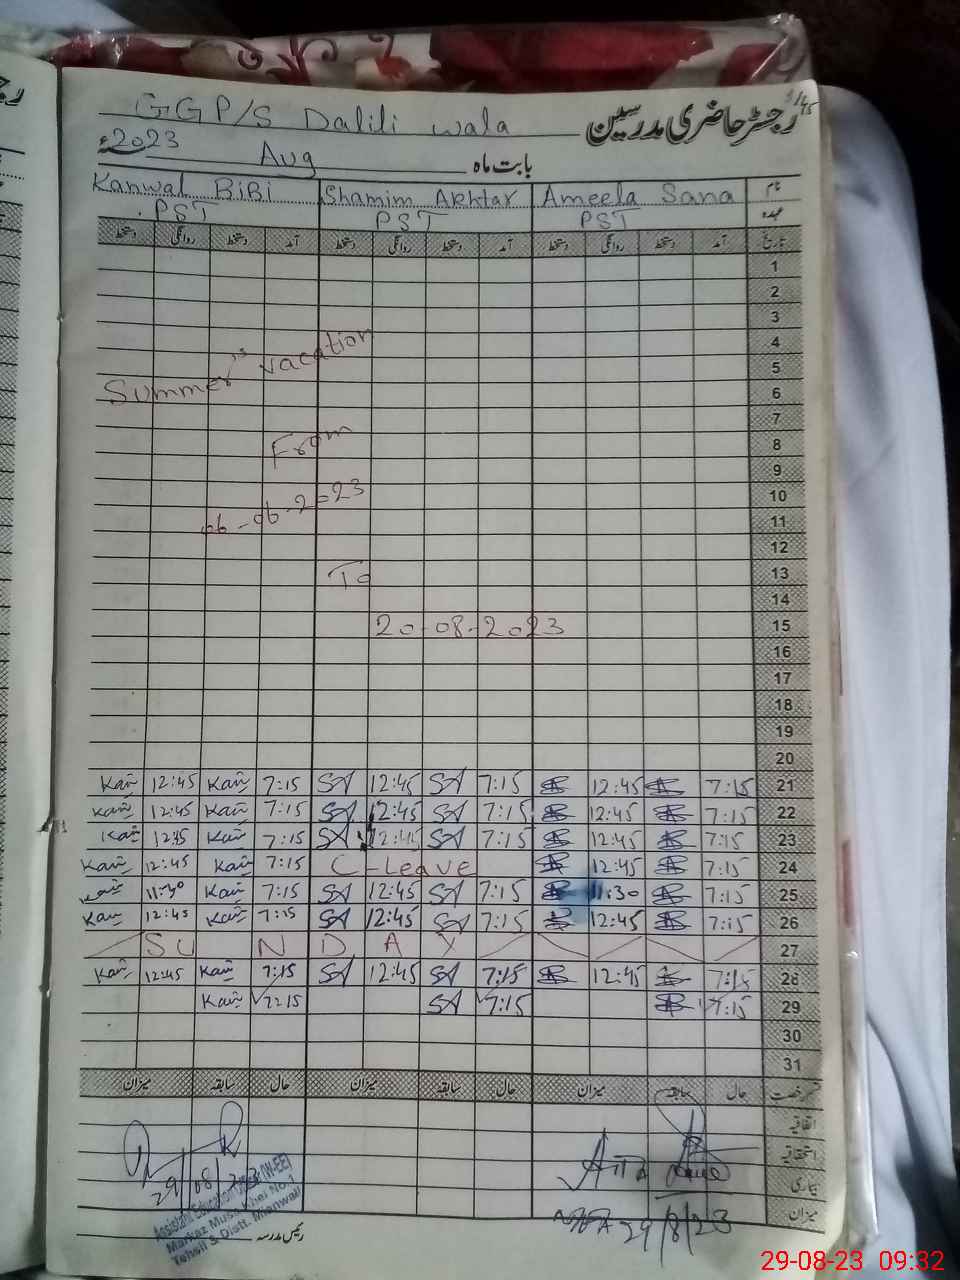 GGP/S Dalili wala
رجسٹر حاضری مدرسین
2023ء
Aug
بابت ماہ
Kanwal BiBi Shamim Akhtar Ameela Sana نام
PST PST PST عہدہ
دستخط روانگی دستخط آمد دستخط روانگی دستخط آمد دستخط روانگی دستخط آمد تاریخ
1
2
3
4
Summer's vacation
5
6
7
From
8
9
06-06-2023
10
11
12
To
13
14
20-08-2023
15
16
17
18
19
20
12:45 7:15 SA 12:45 SA 7:15 12:45 7:15 21
12:45 7:15 SA 12:45 SA 7:15 12:45 7:15 22
12:45 7:15 SA 12:45 SA 7:15 12:45 7:15 23
12:45 7:15 C-Leave 12:45 7:15 24
11:30 7:15 SA 12:45 SA 7:15 11:30 7:15 25
12:45 7:15 SA 12:45 SA 7:15 12:45 7:15 26
SUNDAY 27
12:45 7:15 SA 12:45 SA 7:15 12:45 7:15 28
7:15 SA 7:15 7:15 29
30
31
میزان سابقہ حال میزان سابقہ حال میزان سابقہ حال
اتفاقیہ
استحقاقیہ
بیماری
میزان
29/08/23
Assistant Education Officer (W-EE)
Markaz Musa Khel No.1
Tehsil & Distt. Mianwali
29/8/23
رئیس مدرسہ
29-08-23 09:32